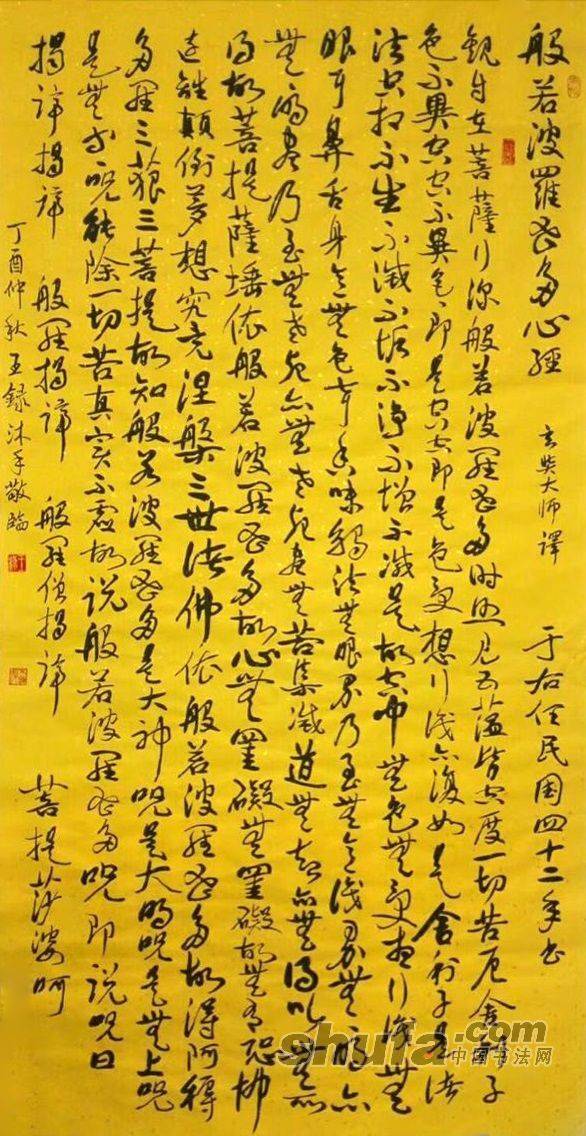 般若波羅蜜多心經 玄奘大師譯 于右任民國四十二年書
觀自在菩薩行深般若波羅蜜多時照見五蘊皆空度一切苦厄舍利子
色不異空空不異色色即是空空即是色受想行識亦復如是舍利子是諸
法空相不生不滅不垢不淨不增不減是故空中無色無受想行識無
眼耳鼻舌身意無色聲香味觸法無眼界乃至無意識界無無明亦
無無明盡乃至無老死亦無老死盡無苦集滅道無智亦無得以無所
得故菩提薩埵依般若波羅蜜多故心無罣礙無罣礙故無有恐怖
遠離顛倒夢想究竟涅槃三世諸佛依般若波羅蜜多故得阿耨
多羅三藐三菩提故知般若波羅蜜多是大神咒是大明咒是無上咒
是無等等咒能除一切苦真實不虛故說般若波羅蜜多咒即說咒曰
揭諦揭諦 般羅揭諦 般羅僧揭諦 菩提莎婆呵
丁酉仲秋王錄沐手敬臨
shufa.com
中国书法网